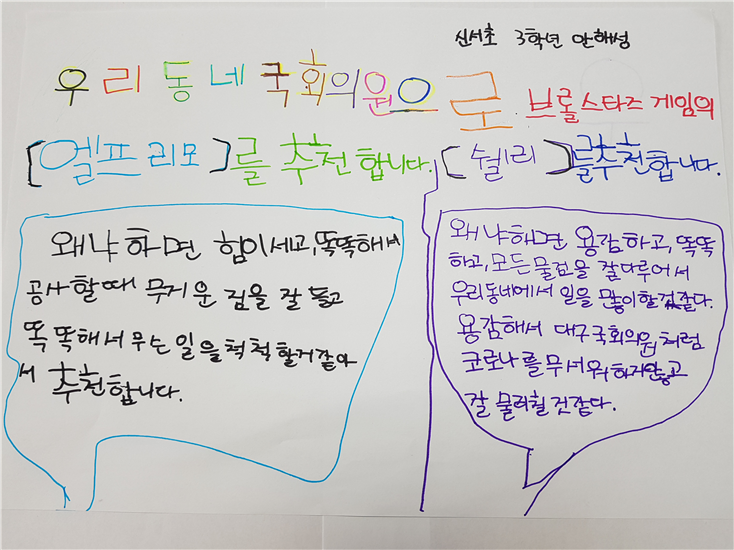 신서초 3학년 안해성
우리동네국회의원으로 브롤스타즈 게임의
[엘프리모]를 추천합니다.
[쉘리]를추천합니다.
왜냐하면 힘이세고,똑똑해서
공사할때 무거운 짐을 잘 들고
똑똑해서무슨일을척척할거같아
서 추천합니다.
왜냐해면 용감하고, 똑똑
하고, 모든물건을 잘다루어서
우리동네에서 일을 많이할것같다.
용감해서 대구국회의원처럼
코로나를무서워하지않고
잘 물리칠것같다.